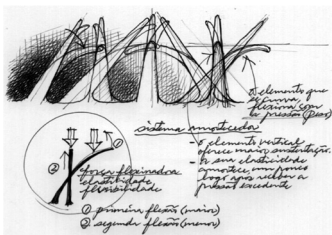 o elemento que
se curva,
flexiona com
a pressão (peso)
sistema amortecedor
- o elemento vertical
oferece maior sustentação.
elasticidade
amortece um pouco
pressão excedente
força flexionadora
elasticidade
flexibilidade
① primeira flexão (maior)
② segunda flexão (menor)
②
①